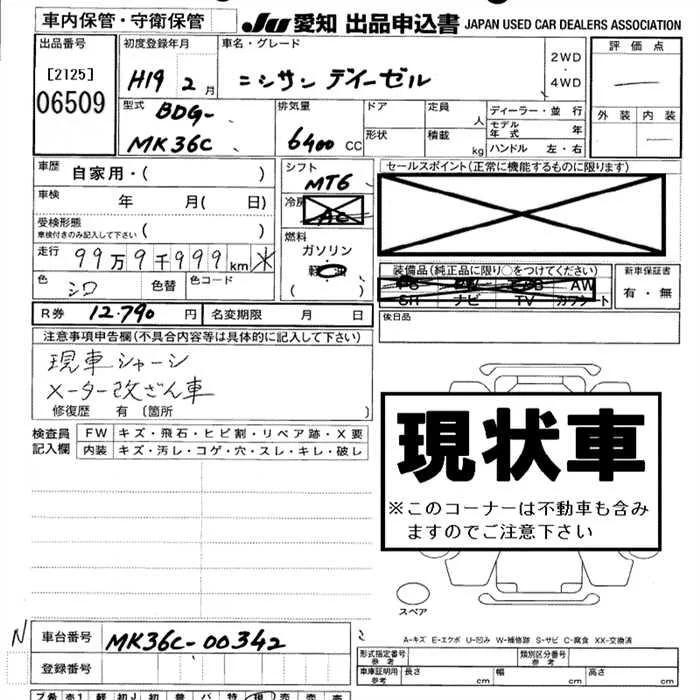 車内保管・守衛保管 JU 愛知 出品申込書 JAPAN USED CAR DEALERS ASSOCIATION
出品番号 初度登録年月 車名・グレード 評価点
[2125] H19 2月 ニシサン デイーゼル 2WD・4WD —
06509
型式 BDG-MK36C 排気量 6400 CC ドア 定員 人 ディーラー・並行 外装 内装
形状 積載 kg モデル年式 年
ハンドル 左・右
車歴 自家用・( ) シフト MT6 セールスポイント(正常に機能するものに限ります)
車検 年 月( 日) 冷房 AC
受検形態 車検付きのみ記入して下さい ( ) 燃料 ガソリン
走行 99万9千999km ※ 軽油
( )
色 シロ 色替 色コード 装備品(純正品に限り○をつけてください) 新車保証書
AW
SR ナビ TV カワシート 有・無
R券 12.790 円 名変期限 月 日 後日品
注意事項申告欄(不具合内容等は具体的に記入して下さい)
現車シャーシ
メーター改ざん車
修復歴 有 〔箇所 〕
検査員記入欄 FW キズ・飛石・ヒビ割・リペア跡・X要
内装 キズ・汚レ・コゲ・穴・スレ・キレ・破レ
現状車
※このコーナーは不動車も含み
ますのでご注意下さい
スペア
A-キズ E-エクボ U-凹み W-補修跡 S-サビ C-腐食 XX-交換済
N 車台番号 MK36C-00342
登録番号
形式指定番号 参考 類別区分番号 参考
車庫証明用 参考 長さ cm 幅 cm 高さ cm